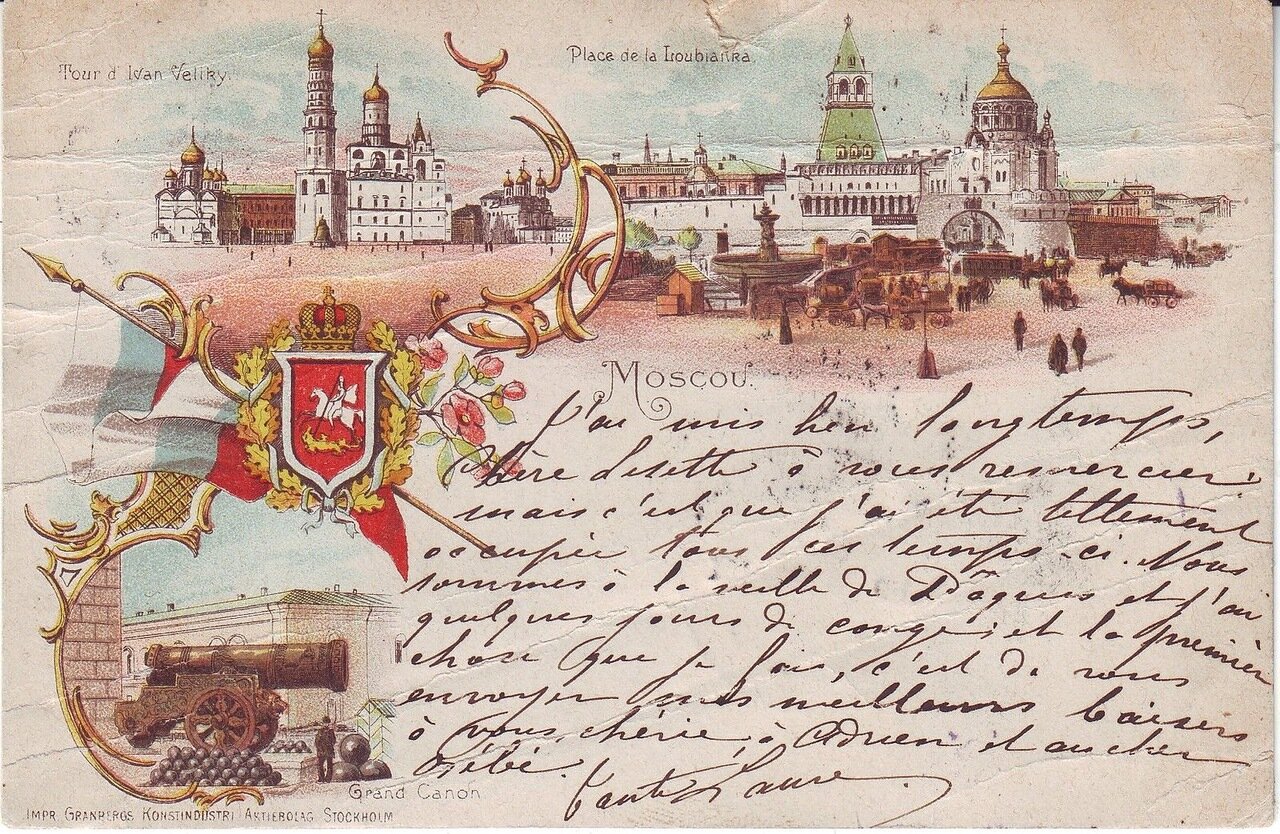 Tour d'Ivan Veliky.
Place de la Loubianka
Moscou.
J'ai mis bien longtemps,
chère Lisette à vous remercier
mais c'est que j'ai été tellement
occupée tous ces temps-ci. Nous
sommes à la veille de Pâques et j'ai
quelques jours de congé; et la première
chose que je fais, c'est de vous
envoyer mes meilleurs baisers
à vous chérie, à Adrien et au cher
Bébé.
Tante Laure
Grand Canon
IMPR. GRANBERGS KONSTINDUSTRI AKTIEBOLAG STOCKHOLM